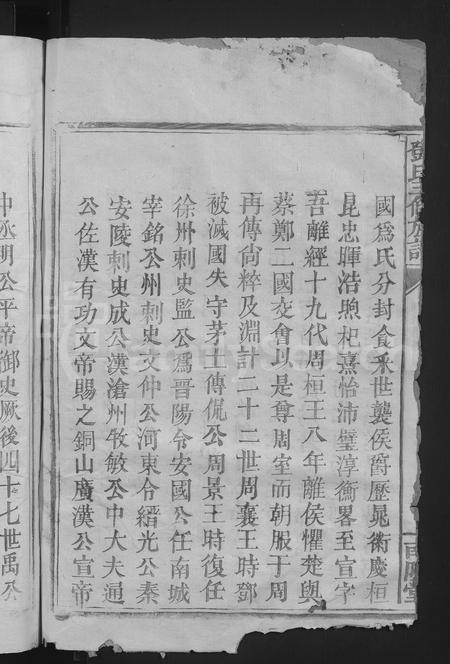 國爲氏分封食采世襲侯爵歷晁術慶桓
昆忠暉浩煦杞熹怡沛璧淳衡畧至宣字
吾離經十九代周桓王八年離侯懼楚與
蔡鄭二國交會以是尊周室而朝服于周
再傳尙粹及淵計二十二世周襄王時鄧
被滅國失守茅土傳侃公周景王時復任
徐州刺史監公爲晋陽令安國公任南城
宰銘公州刺史文仲公河東令縉光公秦
安陵刺史成公漢滄州牧敏公中大夫通
公佐漢有功文帝賜之銅山廣漢公宣帝
中丞明公平帝御史厥後四十七世禹公
鄧氏三修族譜
南陽堂